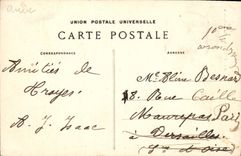 Aude
UNION POSTALE UNIVERSELLE
CARTE POSTALE
CORRESPONDANCE
ADRESSE
Amitiés de
Troyes.
A. J. Isaac
Mlle Aline Besnard
8. Rue Caille
Maurepas Paris
à Versailles
Sne et Oise